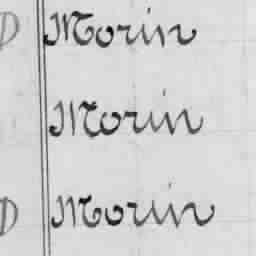 D Morin
Morin
D Morin